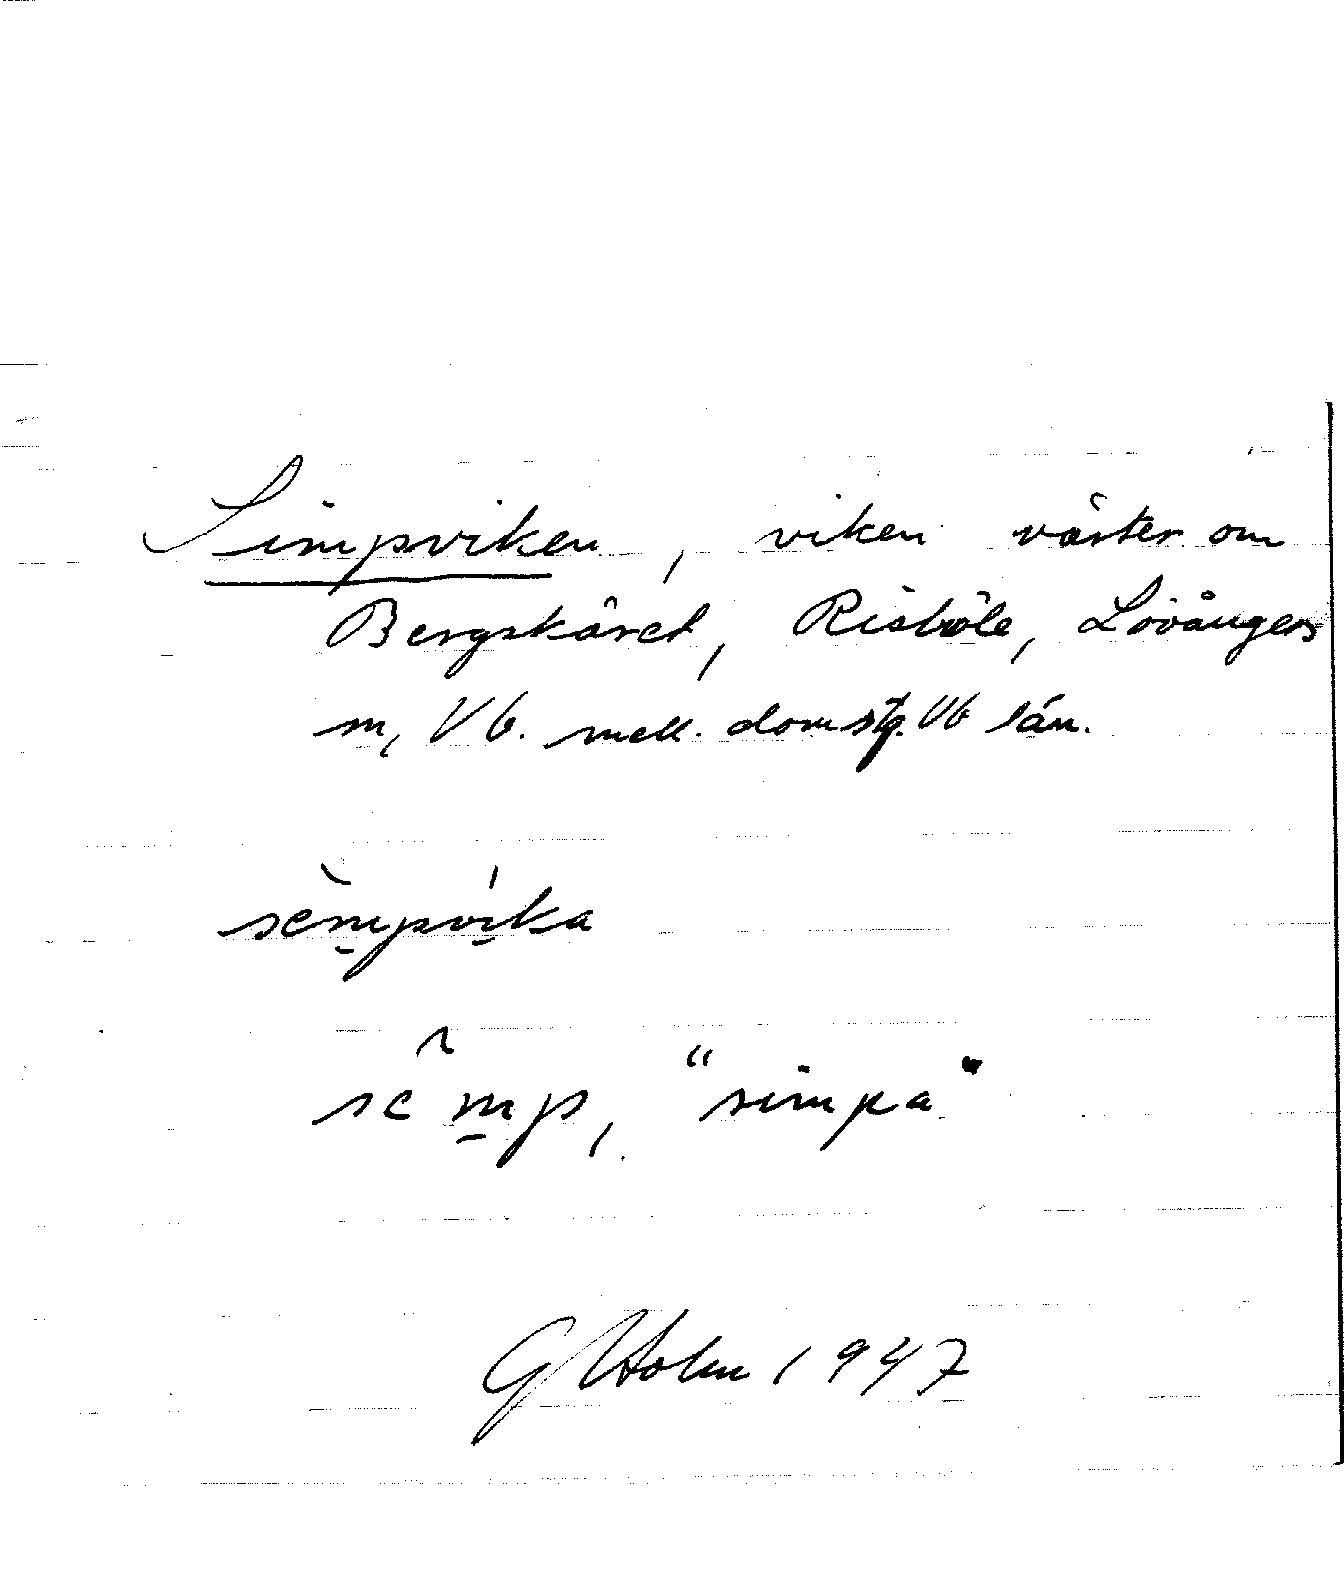 Simpviken, viken väster om
Bergskäret, Risböle, Lövångers
sn, Vb. mell. domstg. Vb län.
sèm̱pvíka
sem̱p, "simpa"
G Holm 1947